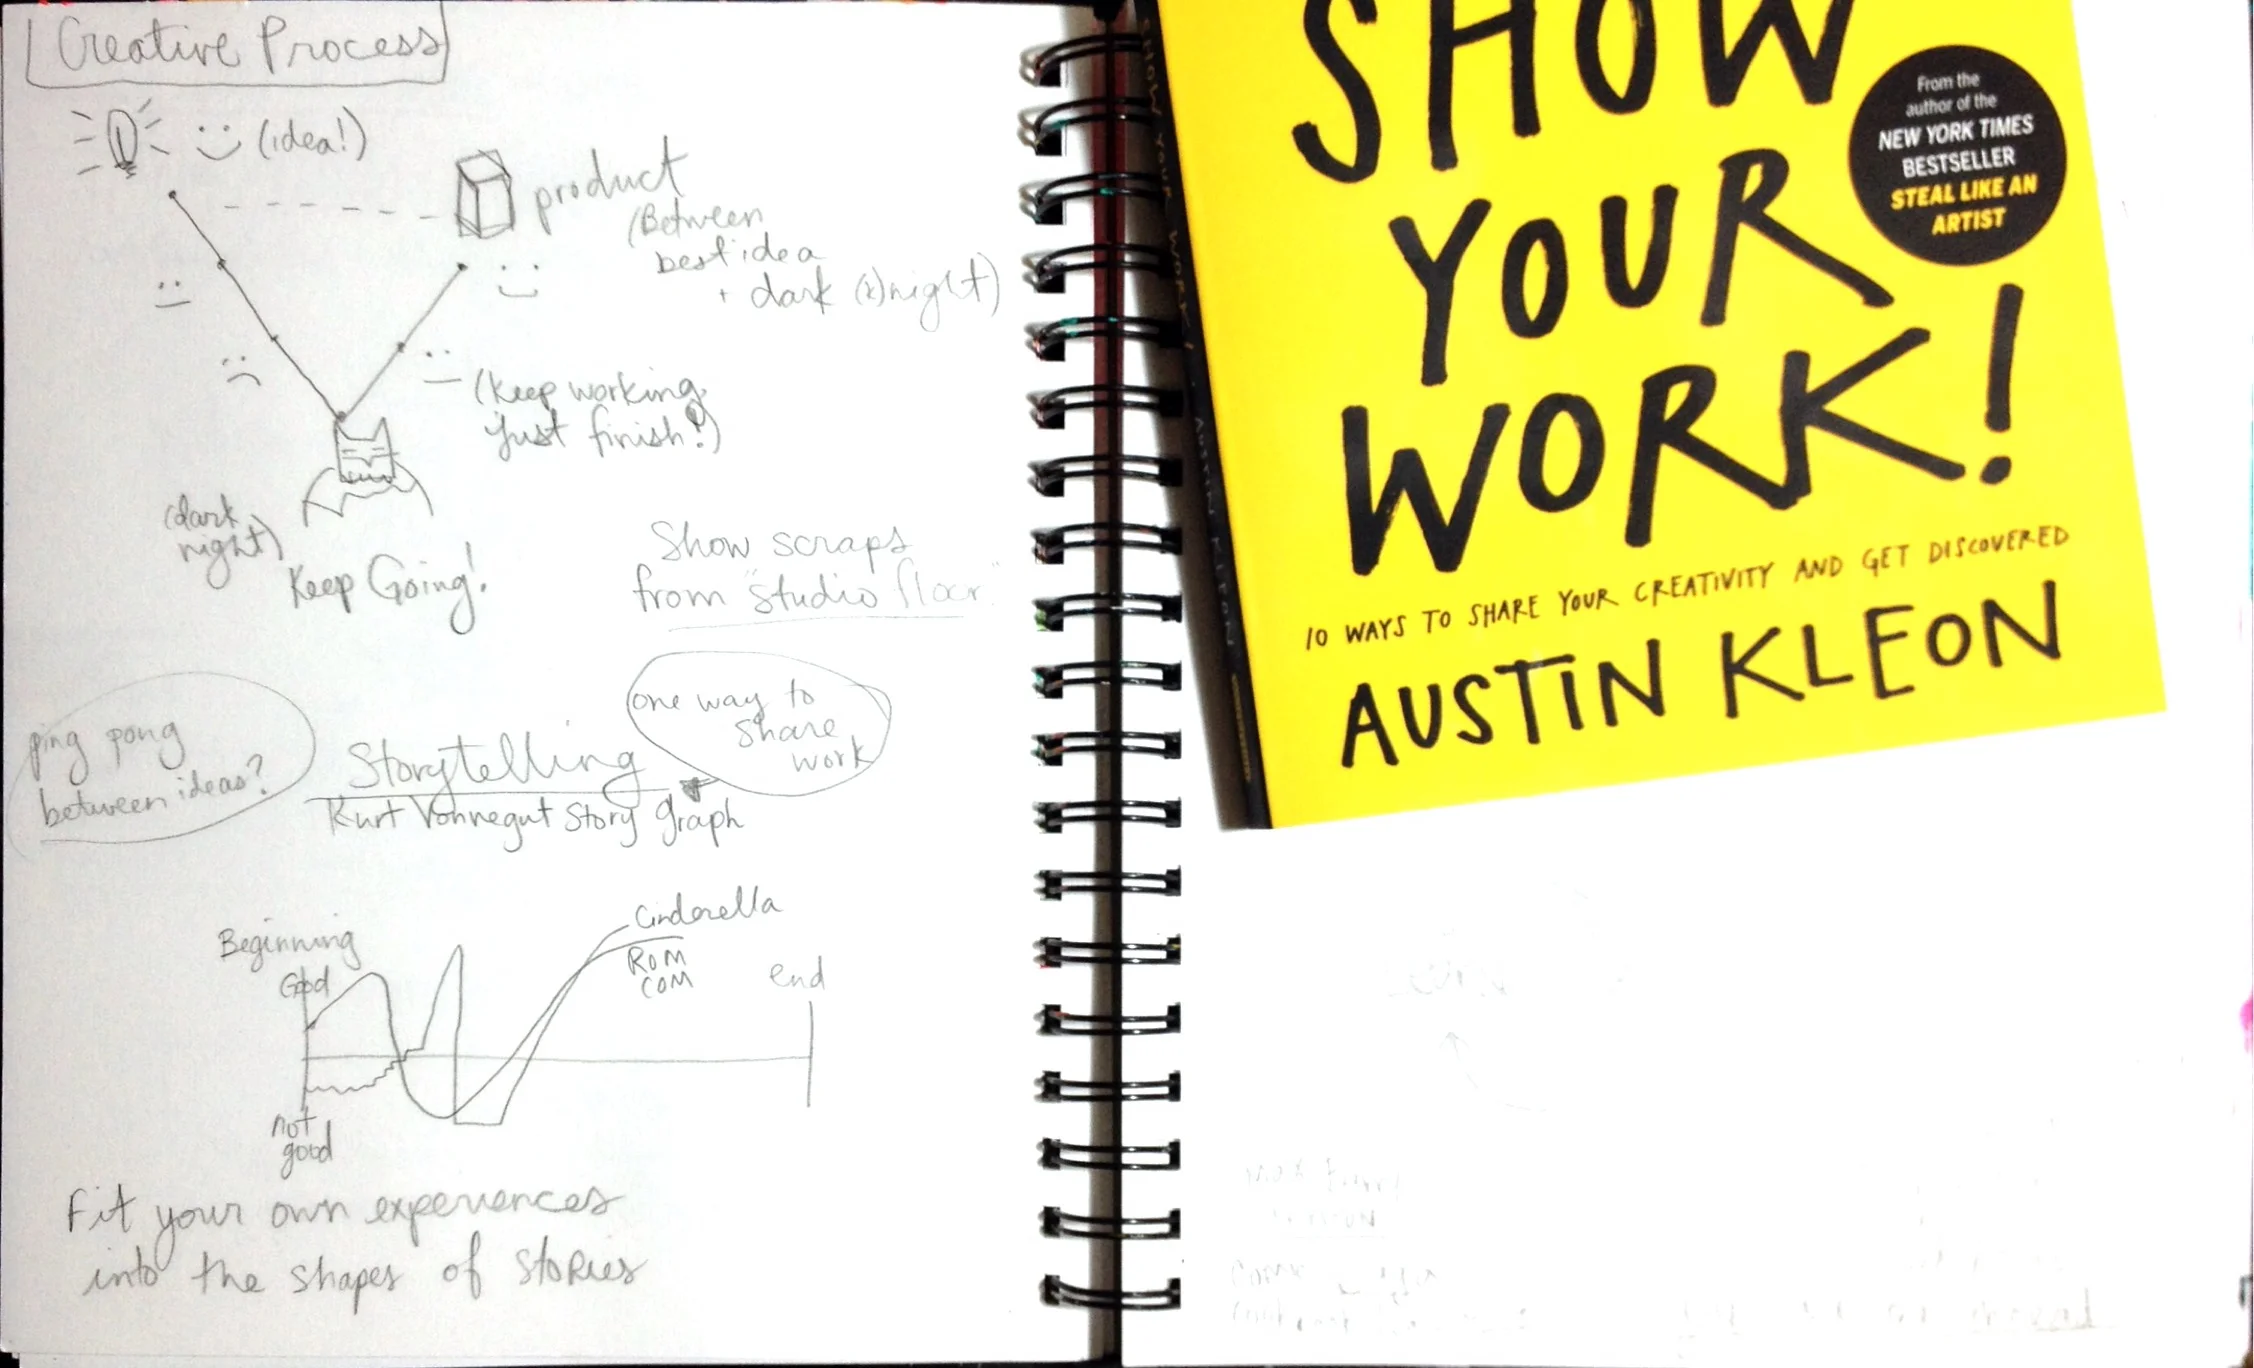 Creative Process
(idea!)
product
(Between
best idea
+ dark (k)night)
(Keep working,
just finish!)
(dark
night)
Keep Going!
Show scraps
from "studio floor"
ping pong
between ideas?
Storytelling
one way to
share
work
Kurt Vonnegut Story graph
Beginning
Good
Cinderella
ROM
COM
end
not
good
Fit your own experiences
into the shapes of stories
SHOW
YOUR
WORK!
From the
author of the
NEW YORK TIMES
BESTSELLER
STEAL LIKE AN
ARTIST
10 WAYS TO SHARE YOUR CREATIVITY AND GET DISCOVERED
AUSTIN KLEON
SHOW YOUR WORK! AUSTIN KLEON